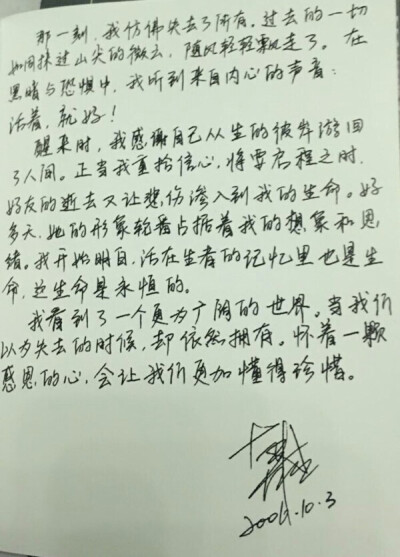 那一刻，我仿佛失去了所有。过去的一切
如同抹过山尖的微云，随风轻轻飘走了。在
黑暗与恐惧中，我听到来自内心的声音：
活着，就好！
醒来时，我感谢自己从生的彼岸游回
了人间。正当我重拾信心，将要启程之时，
好友的逝去又让悲伤渗入到我的生命。好
多天，她的形象轮番占据着我的想象和思
绪。我开始明白，活在生者的记忆里也是生
命，这生命是永恒的。
我看到了一个更为广阔的世界。当我们
以为失去的时候，却依然拥有。怀着一颗
感恩的心，会让我们更加懂得珍惜。
10.3